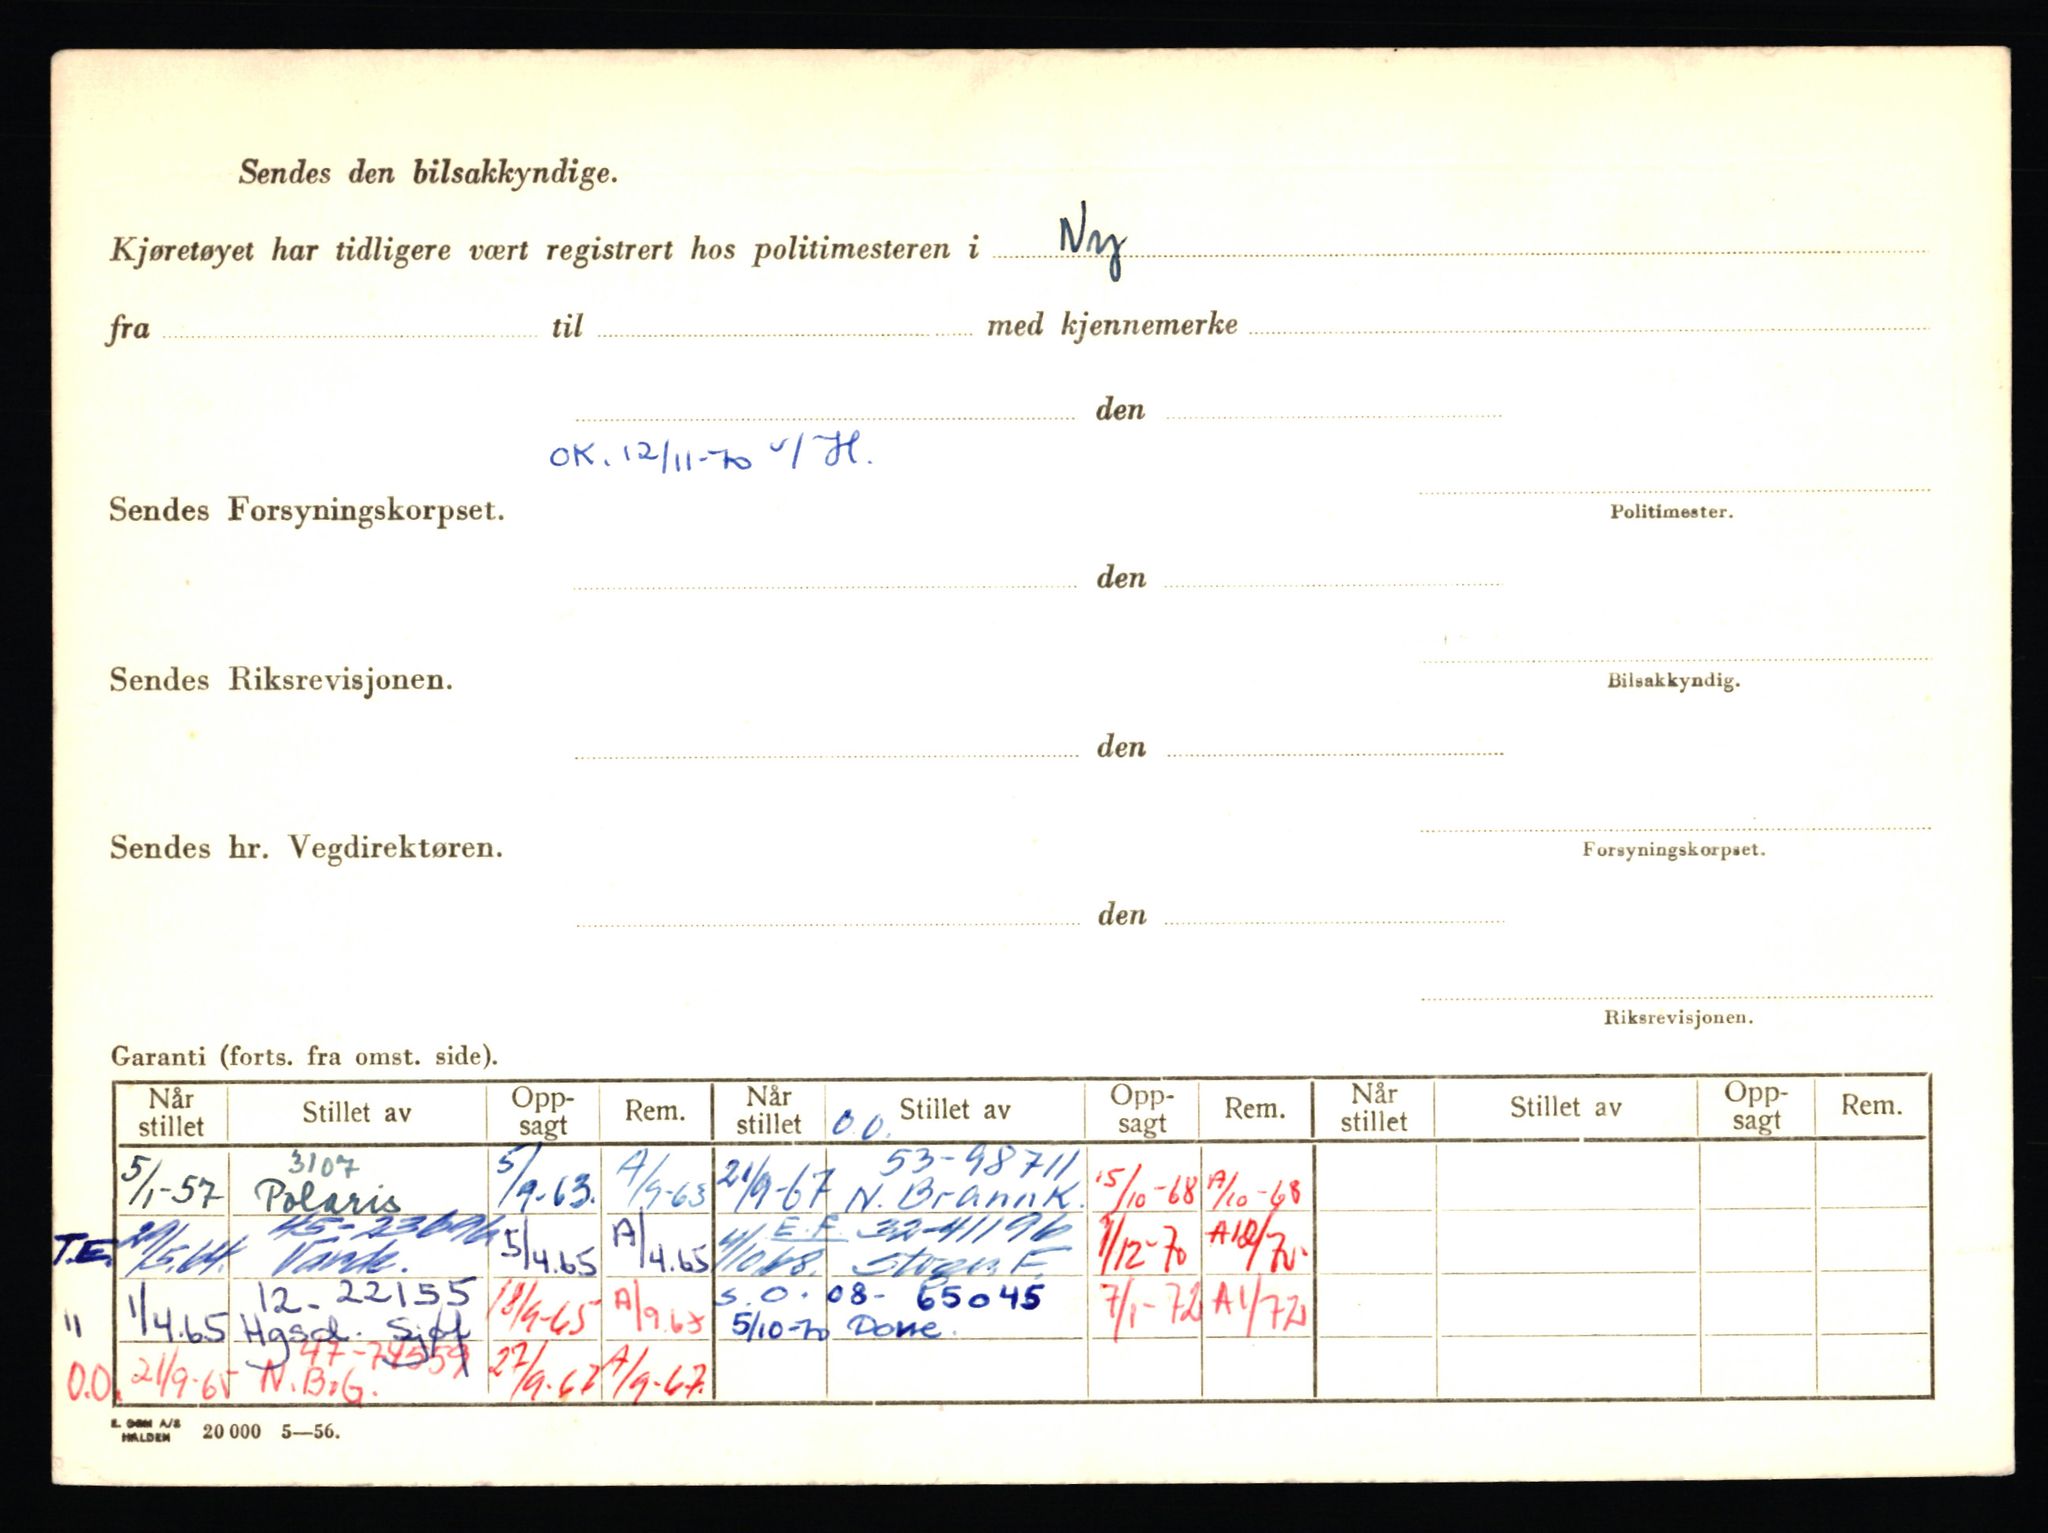 Sendes den bilsakkyndige.
Kjøretøyet har tidligere vært registrert hos politimesteren i Ny
fra til med kjennemerke
den
OK. 12/11-70 v/ H.
Sendes Forsyningskorpset.
Politimester.
den
Sendes Riksrevisjonen.
Bilsakkyndig.
den
Sendes hr. Vegdirektøren.
Forsyningskorpset.
den
Riksrevisjonen.
Garanti (forts. fra omst. side).
Når stillet Stillet av Opp-sagt Rem. Når stillet O.O. Stillet av Opp-sagt Rem. Når stillet Stillet av Opp-sagt Rem.
3107 53-98711
5/1-57 Polaris 5/9-63. A/9-63 21/9-67 N. Brannk. 15/10-68 A/10-68
E.F. 32-41196
T.E. 5/4.65 A/4.65 4/1068. 1/12-70
12-22155 S.O. 08-65045
" 1/4.65 Hgsd. Sjøf 18/9-65 A/9.65 5/10-70 Dove. 7/1-72 A1/72
O.O. 21/9-65 N.B.G. 27/9-67 A/9-67.
HALDEN 20 000 5—56.